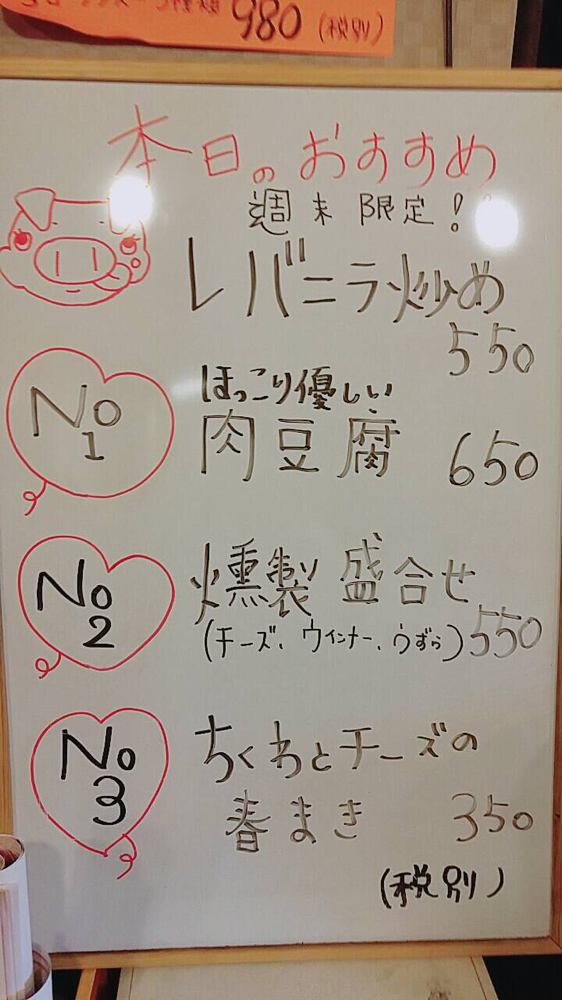 980 (税別)
本日のおすすめ
週末限定!
レバニラ炒め
550
No1
ほっこり優しい
肉豆腐 650
No2
燻製 盛合せ
(チーズ、ウインナー、うずら) 550
No3
ちくわとチーズの
春まき 350
(税別)